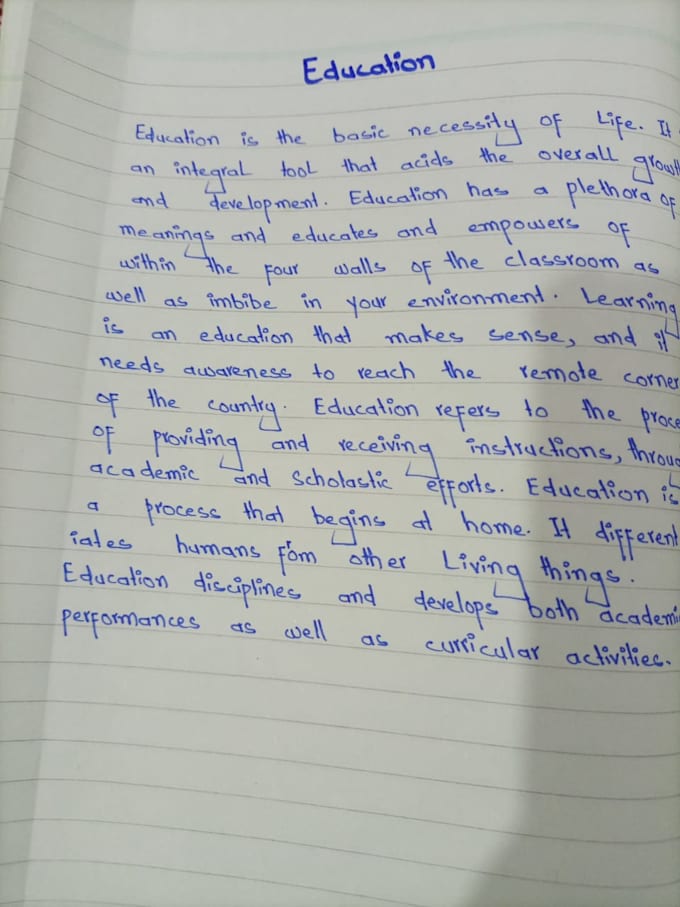 Education
Education is the basic necessity of Life. It
an integral tool that acids the overall growth
and development. Education has a plethora of
meanings and educates and empowers of
within the four walls of the classroom as
well as imbibe in your environment. Learning
is an education that makes sense, and it
needs awareness to reach the remote corner
of the country. Education refers to the proce
of providing and receiving instructions, throug
academic and scholastic efforts. Education is
a process that begins at home. It different
iates humans fom other Living things.
Education disciplines and develops both academi
performances as well as curricular activities.